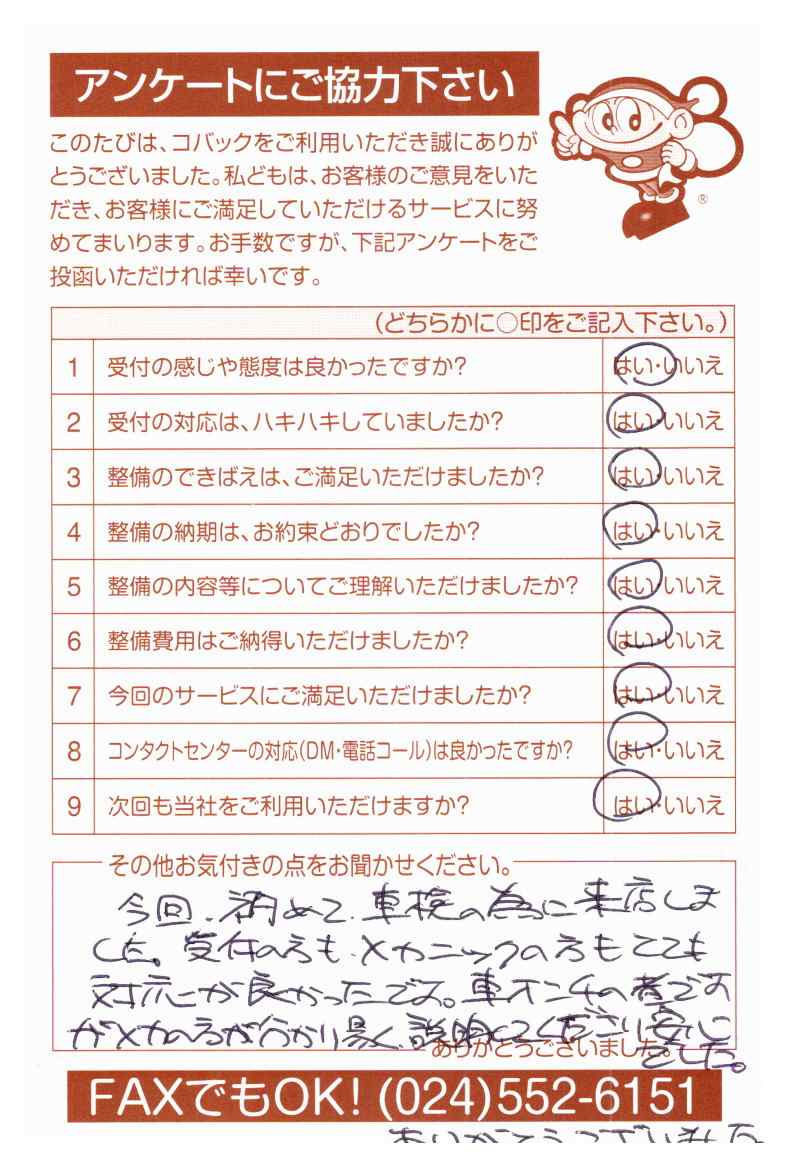 アンケートにご協力下さい
このたびは、コバックをご利用いただき誠にありが
とうございました。私どもは、お客様のご意見をいた
だき、お客様にご満足していただけるサービスに努
めてまいります。お手数ですが、下記アンケートをご
投函いただければ幸いです。
®
(どちらかに○印をご記入下さい。)
1 受付の感じや態度は良かったですか? はい・いいえ
2 受付の対応は、ハキハキしていましたか? はい・いいえ
3 整備のできばえは、ご満足いただけましたか? はい・いいえ
4 整備の納期は、お約束どおりでしたか? はい・いいえ
5 整備の内容等についてご理解いただけましたか? はい・いいえ
6 整備費用はご納得いただけましたか? はい・いいえ
7 今回のサービスにご満足いただけましたか? はい・いいえ
8 コンタクトセンターの対応(DM・電話コール)は良かったですか? はい・いいえ
9 次回も当社をご利用いただけますか? はい・いいえ
その他お気付きの点をお聞かせください。
今回、初めて、車検の為に来店しま
した。受付の方も、メカニックの方もとても
対応が良かったです。車オンチの者です
がメカの方が分かり易く説明してくださり安心
でした。
ありがとうございました。
FAXでもOK! (024)552-6151
ありがとうございました